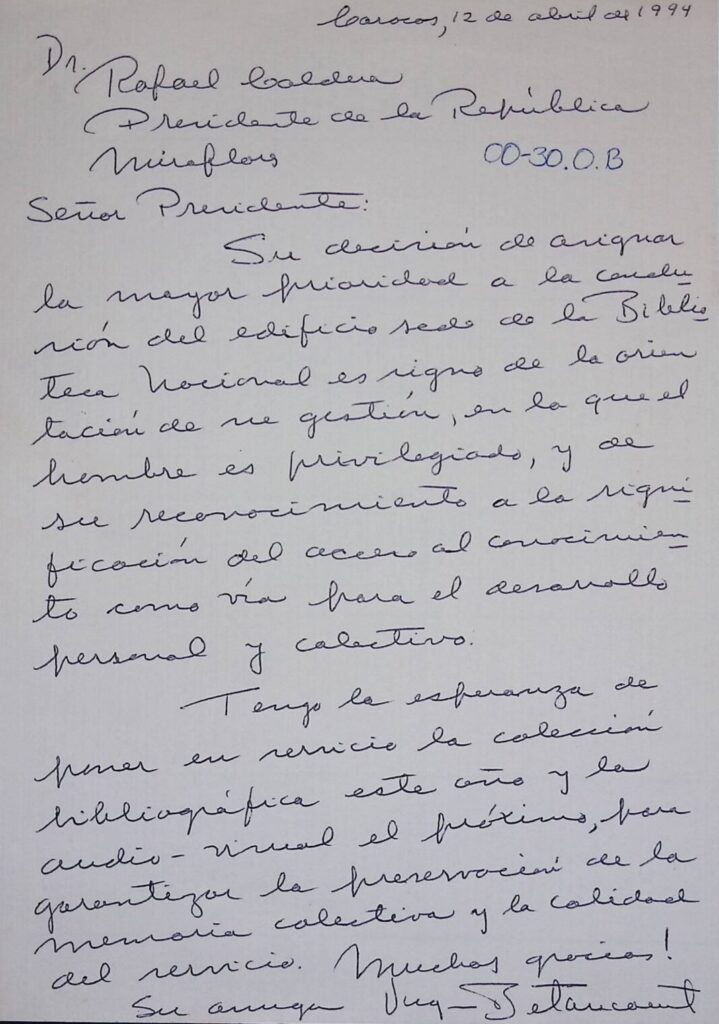 Caracas, 12 de abril de 1994
Dr.
Rafael Caldera
Presidente de la República
Miraflores
00-30.O.B
Señor Presidente:
Su decisión de asignar
la mayor prioridad a la conclu
sión del edificio sede de la Biblio
teca Nacional es signo de la orien
tación de su gestión, en la que el
hombre es privilegiado, y de
su reconocimiento a la signi
ficación del acceso al conocimien
to como vía para el desarrollo
personal y colectivo.
Tengo la esperanza de
poner en servicio la colección
bibliográfica este año y la
audio-visual el próximo, para
garantizar la preservación de la
memoria colectiva y la calidad
del servicio. Muchas gracias!
Su amiga Betancourt